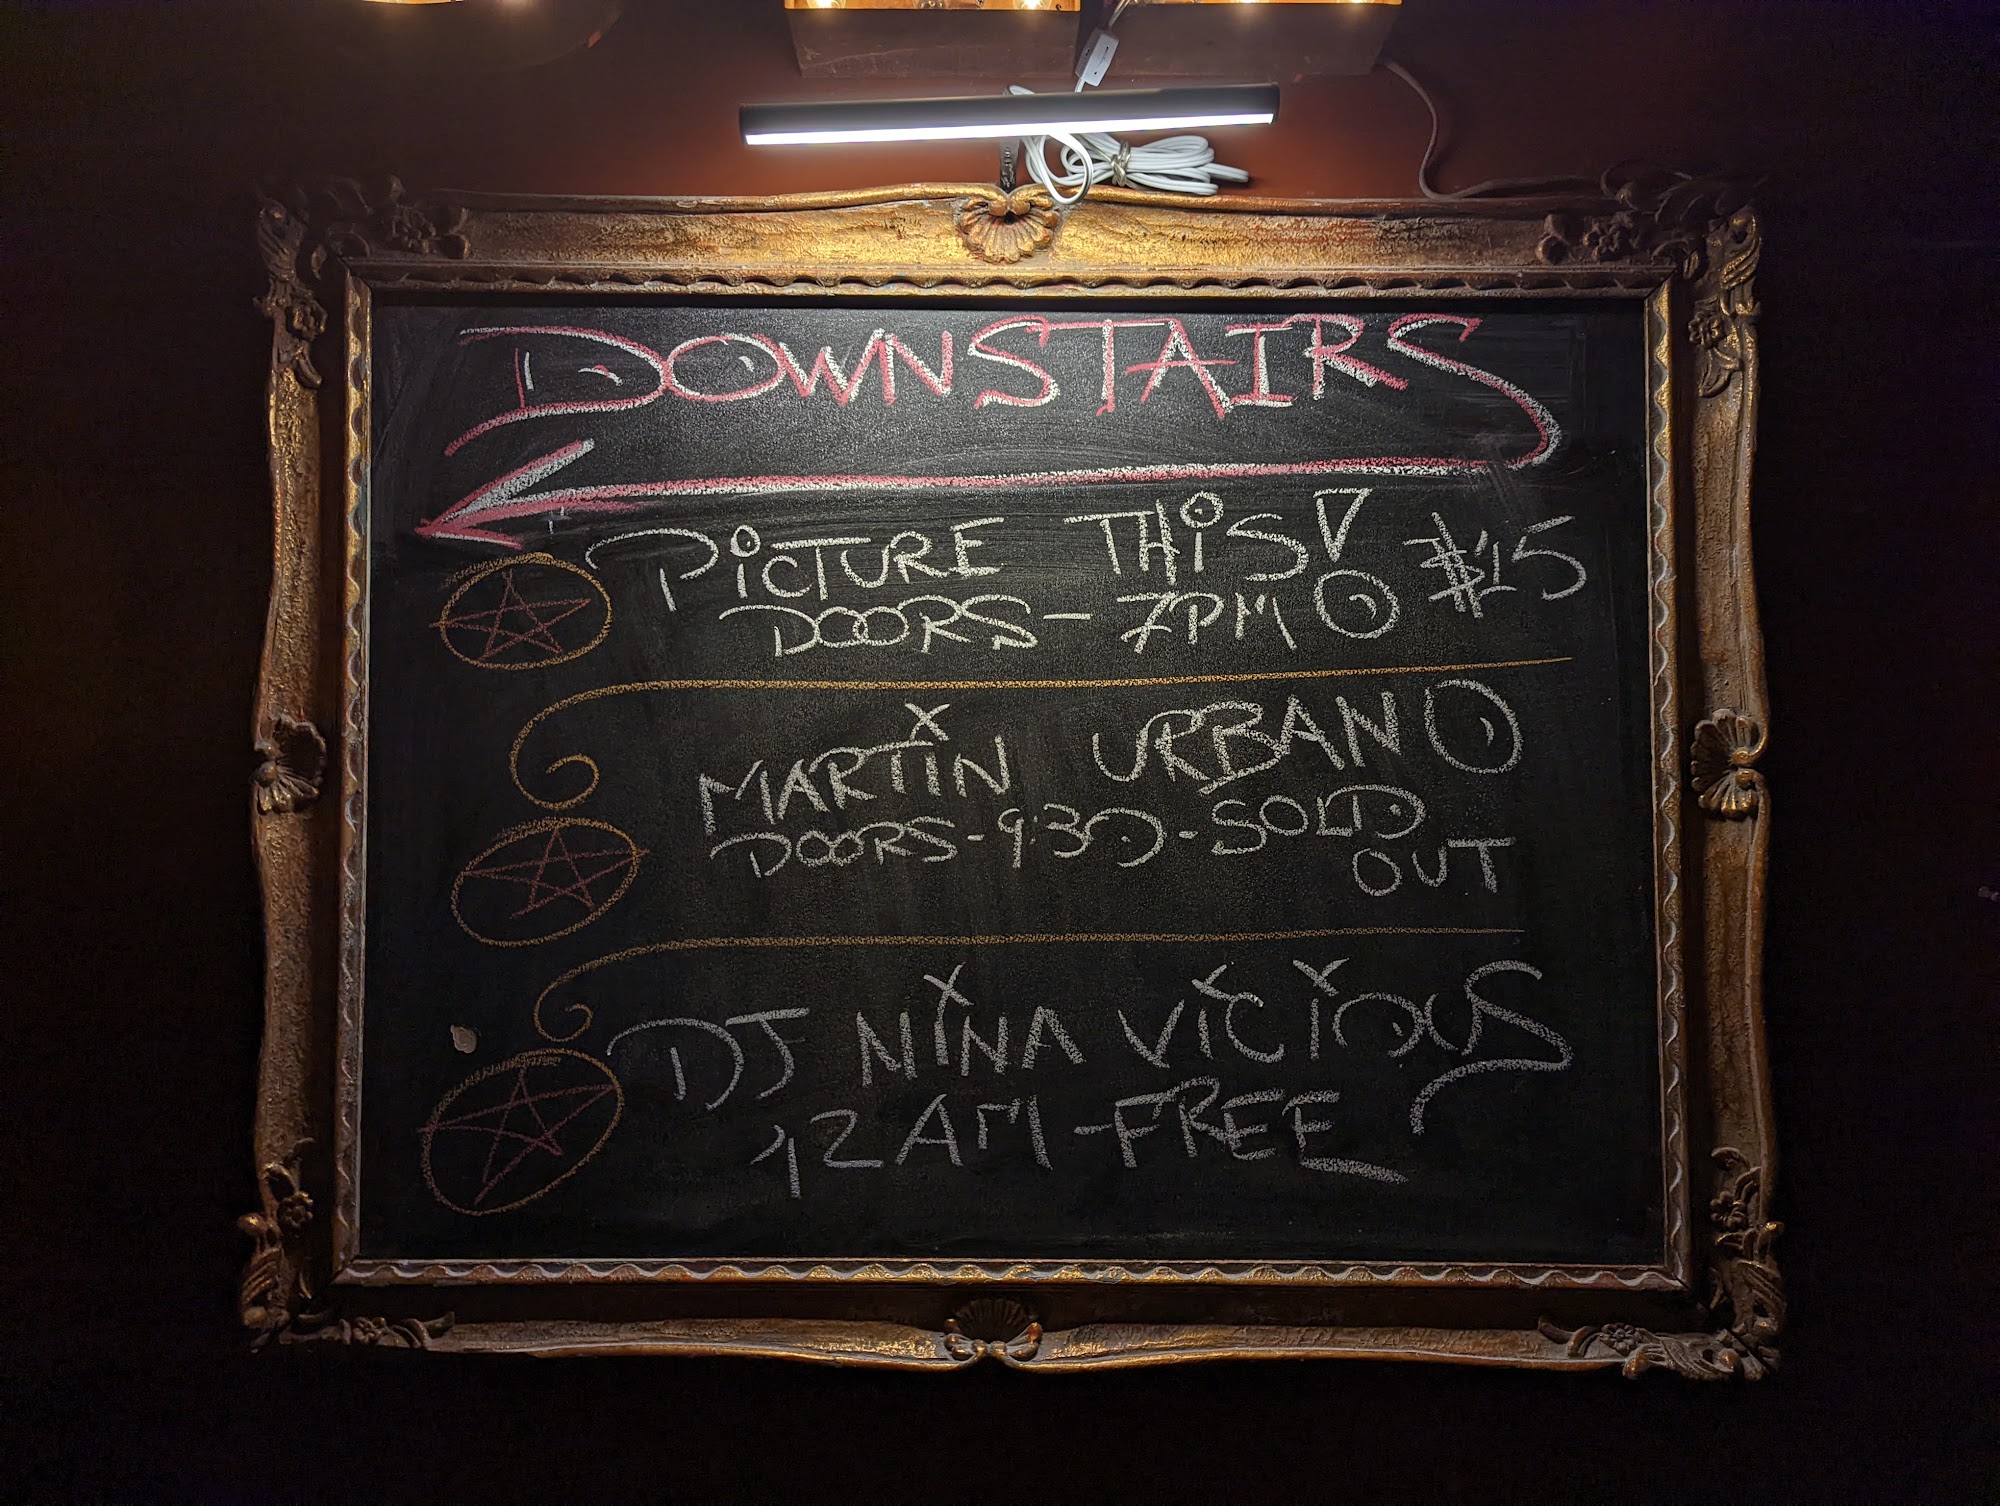 DOWNSTAIRS
PiCTURE THiS! $15
DOORS - 7PM
MARTiN URBANO
DOORS - 9:30 - SOLD
OUT
DJ NiNA ViCiOUS
12 AM - FREE